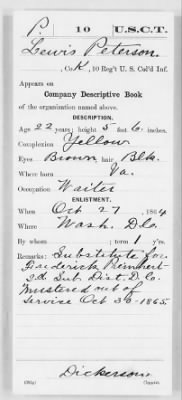 P. 10 U.S.C.T.
Lewis Peterson
, Co. K, 10 Reg't U. S. Col'd Inf.
Appears on
Company Descriptive Book
of the organization named above.
DESCRIPTION.
Age 22 years; height 5 feet 6 inches.
Complexion Yellow
Eyes Brown, hair Blk.
Where born Va.
Occupation Waiter
ENLISTMENT.
When Oct 27, 1864
Where Wash. D.C.
By whom ; term 1 y'rs.
Remarks: Substitute for
Frederick
2d Sub. Dist. D.C.
Mustered out of
service Oct 30 1865.
Dickerson
Copyist.